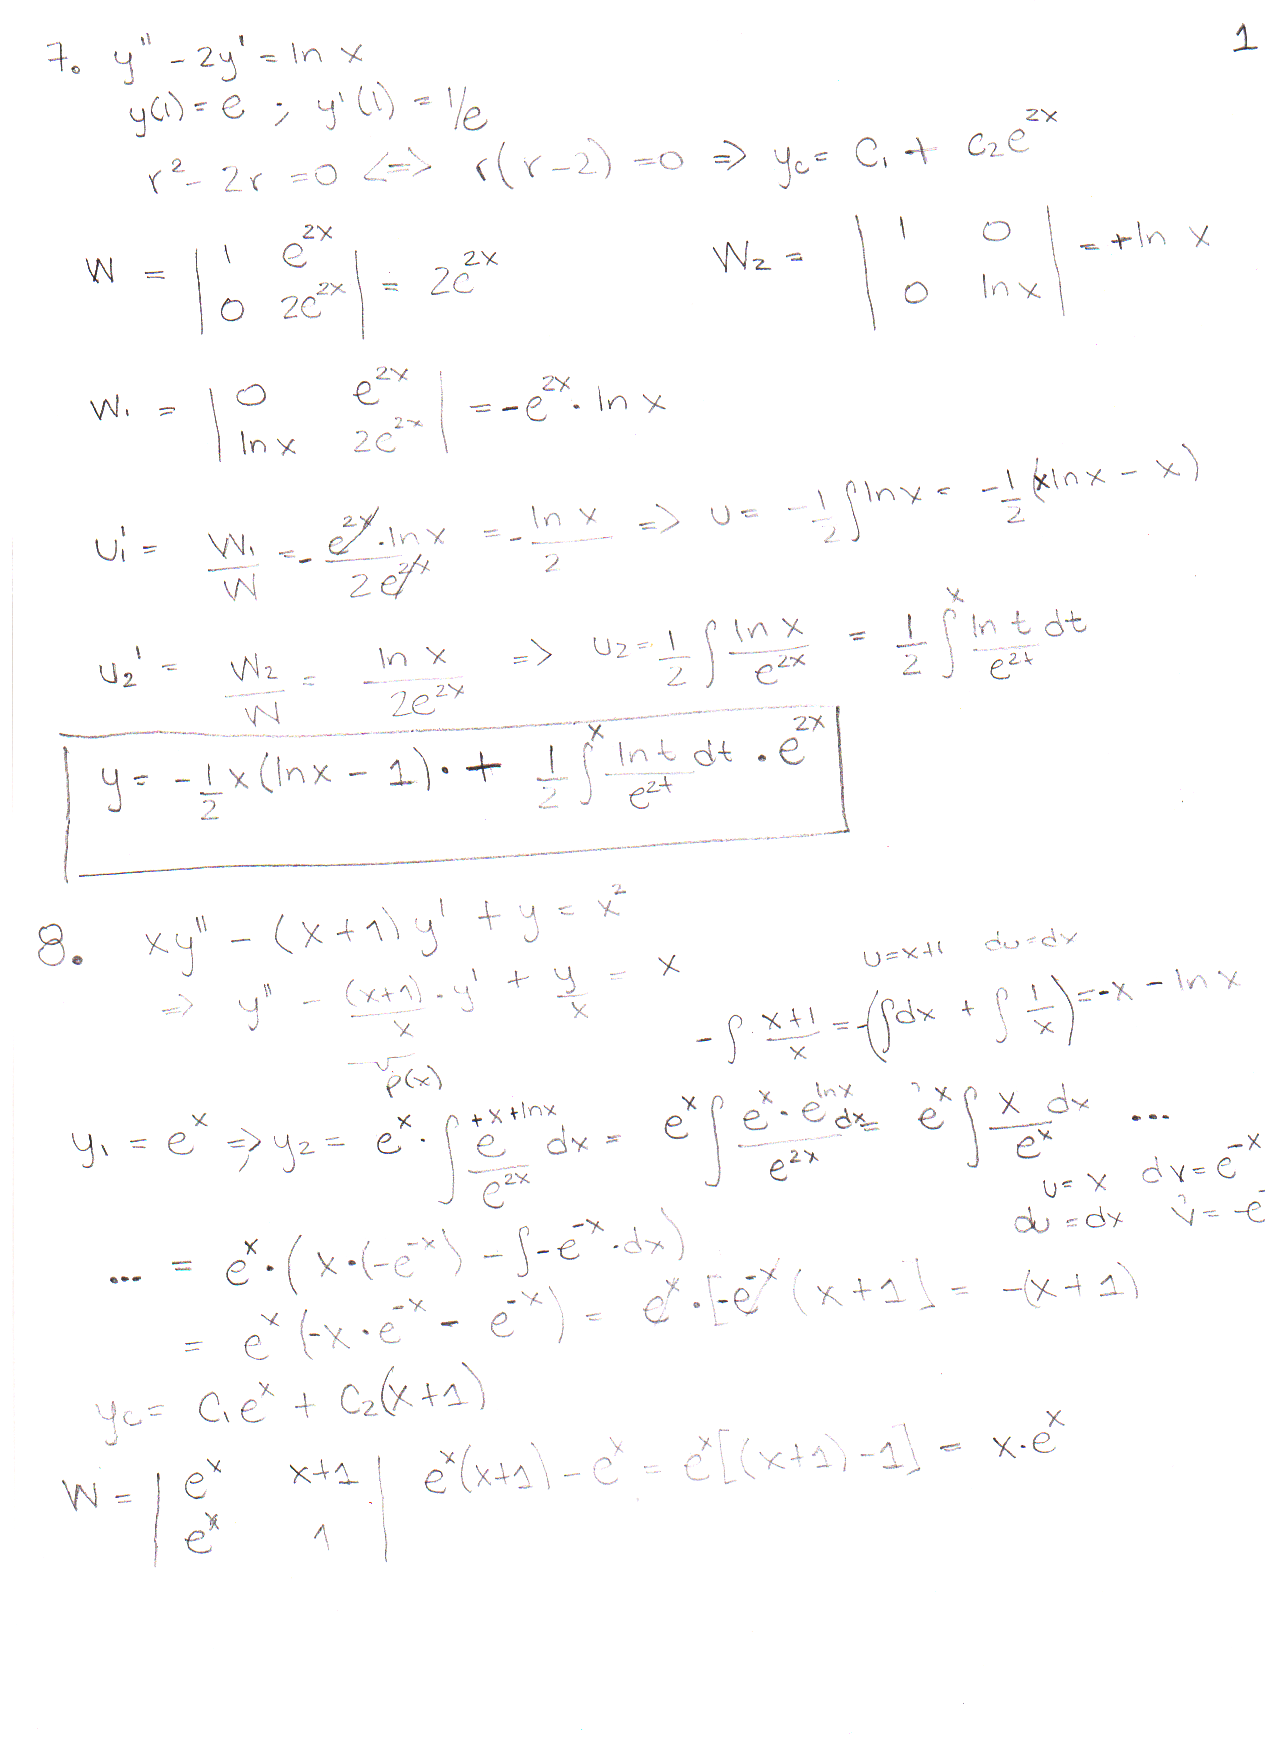 1
7. y'' - 2y' = ln x
y(1) = e ; y'(1) = 1/e
r² - 2r = 0 <=> r(r-2) = 0 => yc = C₁ + C₂e^{2x}
W = | 1 e^{2x} ; 0 2e^{2x} | = 2e^{2x} W₂ = | 1 0 ; 0 ln x | = +ln x
W₁ = | 0 e^{2x} ; ln x 2e^{2x} | = -e^{2x} · ln x
u₁' = W₁/W = - e^{2x}·ln x / 2e^{2x} = - ln x / 2 => u = -1/2 ∫ ln x = -1/2 (x ln x - x)
u₂' = W₂/W = ln x / 2e^{2x} => u₂ = 1/2 ∫ ln x / e^{2x} = 1/2 ∫^x ln t dt / e^{2t}
y = -1/2 x(ln x - 1) · + 1/2 ∫^x ln t dt / e^{2t} · e^{2x}
8. xy'' - (x+1)y' + y = x²
u = x+1 du = dx
=> y'' - (x+1)/x · y' + y/x = x
p(x)
-∫ x+1/x = -(∫dx + ∫ 1/x) = -x - ln x
y₁ = e^x => y₂ = e^x · ∫ e^{+x+lnx} / e^{2x} dx = e^x ∫ e^x · e^{lnx} / e^{2x} dx = e^x ∫ x dx / e^x ...
u = x dv = e^{-x}
du = dx v = -e
... = e^x · (x·(-e^{-x}) - ∫-e^{-x}·dx)
= e^x (-x·e^{-x} - e^{-x}) = e^x · [-e^{-x} (x+1] = -(x+1)
yc = C₁e^x + C₂(x+1)
W = | e^x x+1 ; e^x 1 | e^x(x+1) - e^x = e^x[(x+1)-1] = x·e^x